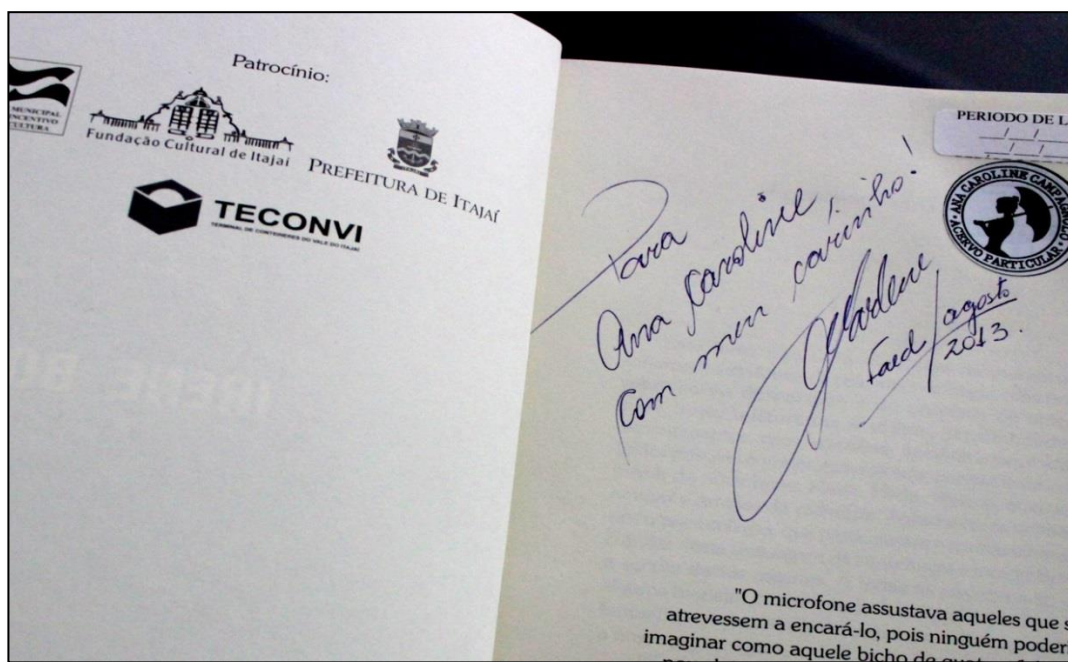 Patrocínio:
MUNICIPAL
INCENTIVO
CULTURA
Fundação Cultural de Itajaí
PREFEITURA DE ITAJAÍ
TECONVI
TERMINAL DE CONTEINERES DO VALE DO ITAJAÍ
PERIODO DE L
__/__/__
__/__/__
ANA CAROLINE CAMPAGNOLO
ACERVO PARTICULAR
Para
Ana Caroline,
Com meu carinho!
Marlene
Faed/agosto
2013.
"O microfone assustava aqueles que s
atrevessem a encará-lo, pois ninguém poderi
imaginar como aquele bicho de